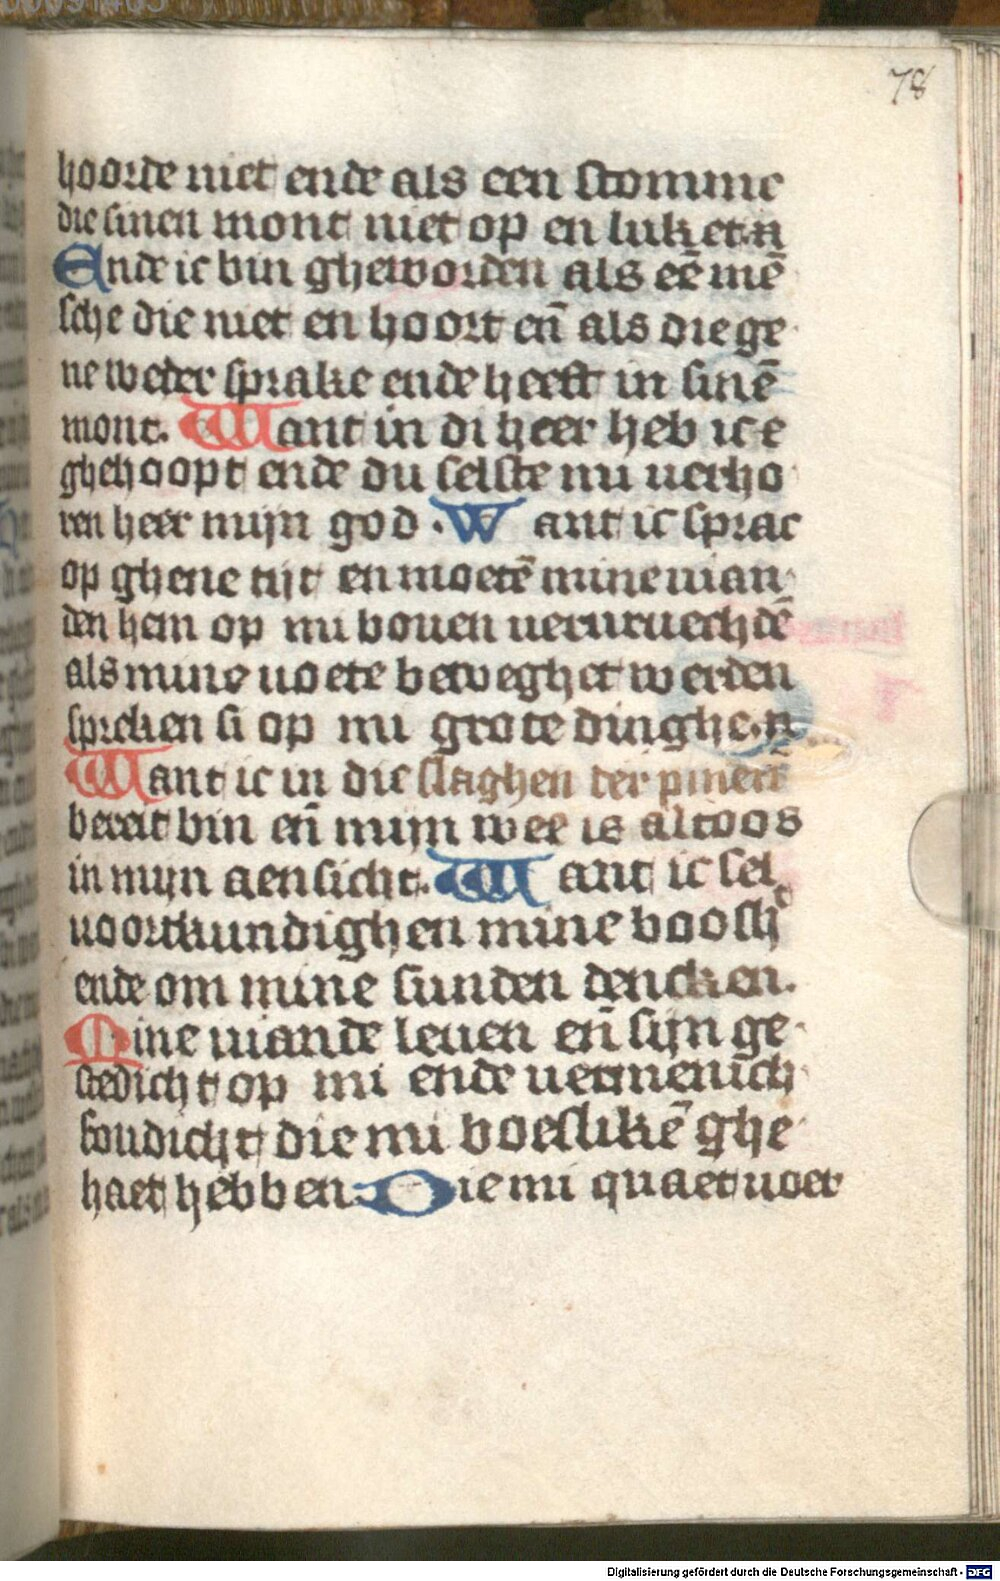 78
hoorde niet ende als een stomme
die sinen mont niet op en luket·n
Ende ic bin gheworden als eē mē
sche die niet en hoort en̄ als die ge
ne weder sprake ende heeft in sinē
mont. Want in di heer heb ic e
ghehoopt ende du selste mi verho
ren heer mijn god. Want ic sprac
op ghene tijt en moetē mine vian
den hem op mi boven vervruechdē
als mine voete beweghet werden
spreken si op mi grote dinghe·n
Want ic in die slaghen der pinen
bereit bin en̄ mijn wee is altoos
in mijn aensicht. Want ic sel
voortkundighen mine boosh
ende om mine sunden dencken.
Mine viande leven en̄ sijn ge
stedicht op mi ende vermenich
voudicht die mi boeslikē ghe
haet hebben. Die mi quaet voer
Digitalisierung gefördert durch die Deutsche Forschungsgemeinschaft - DFG